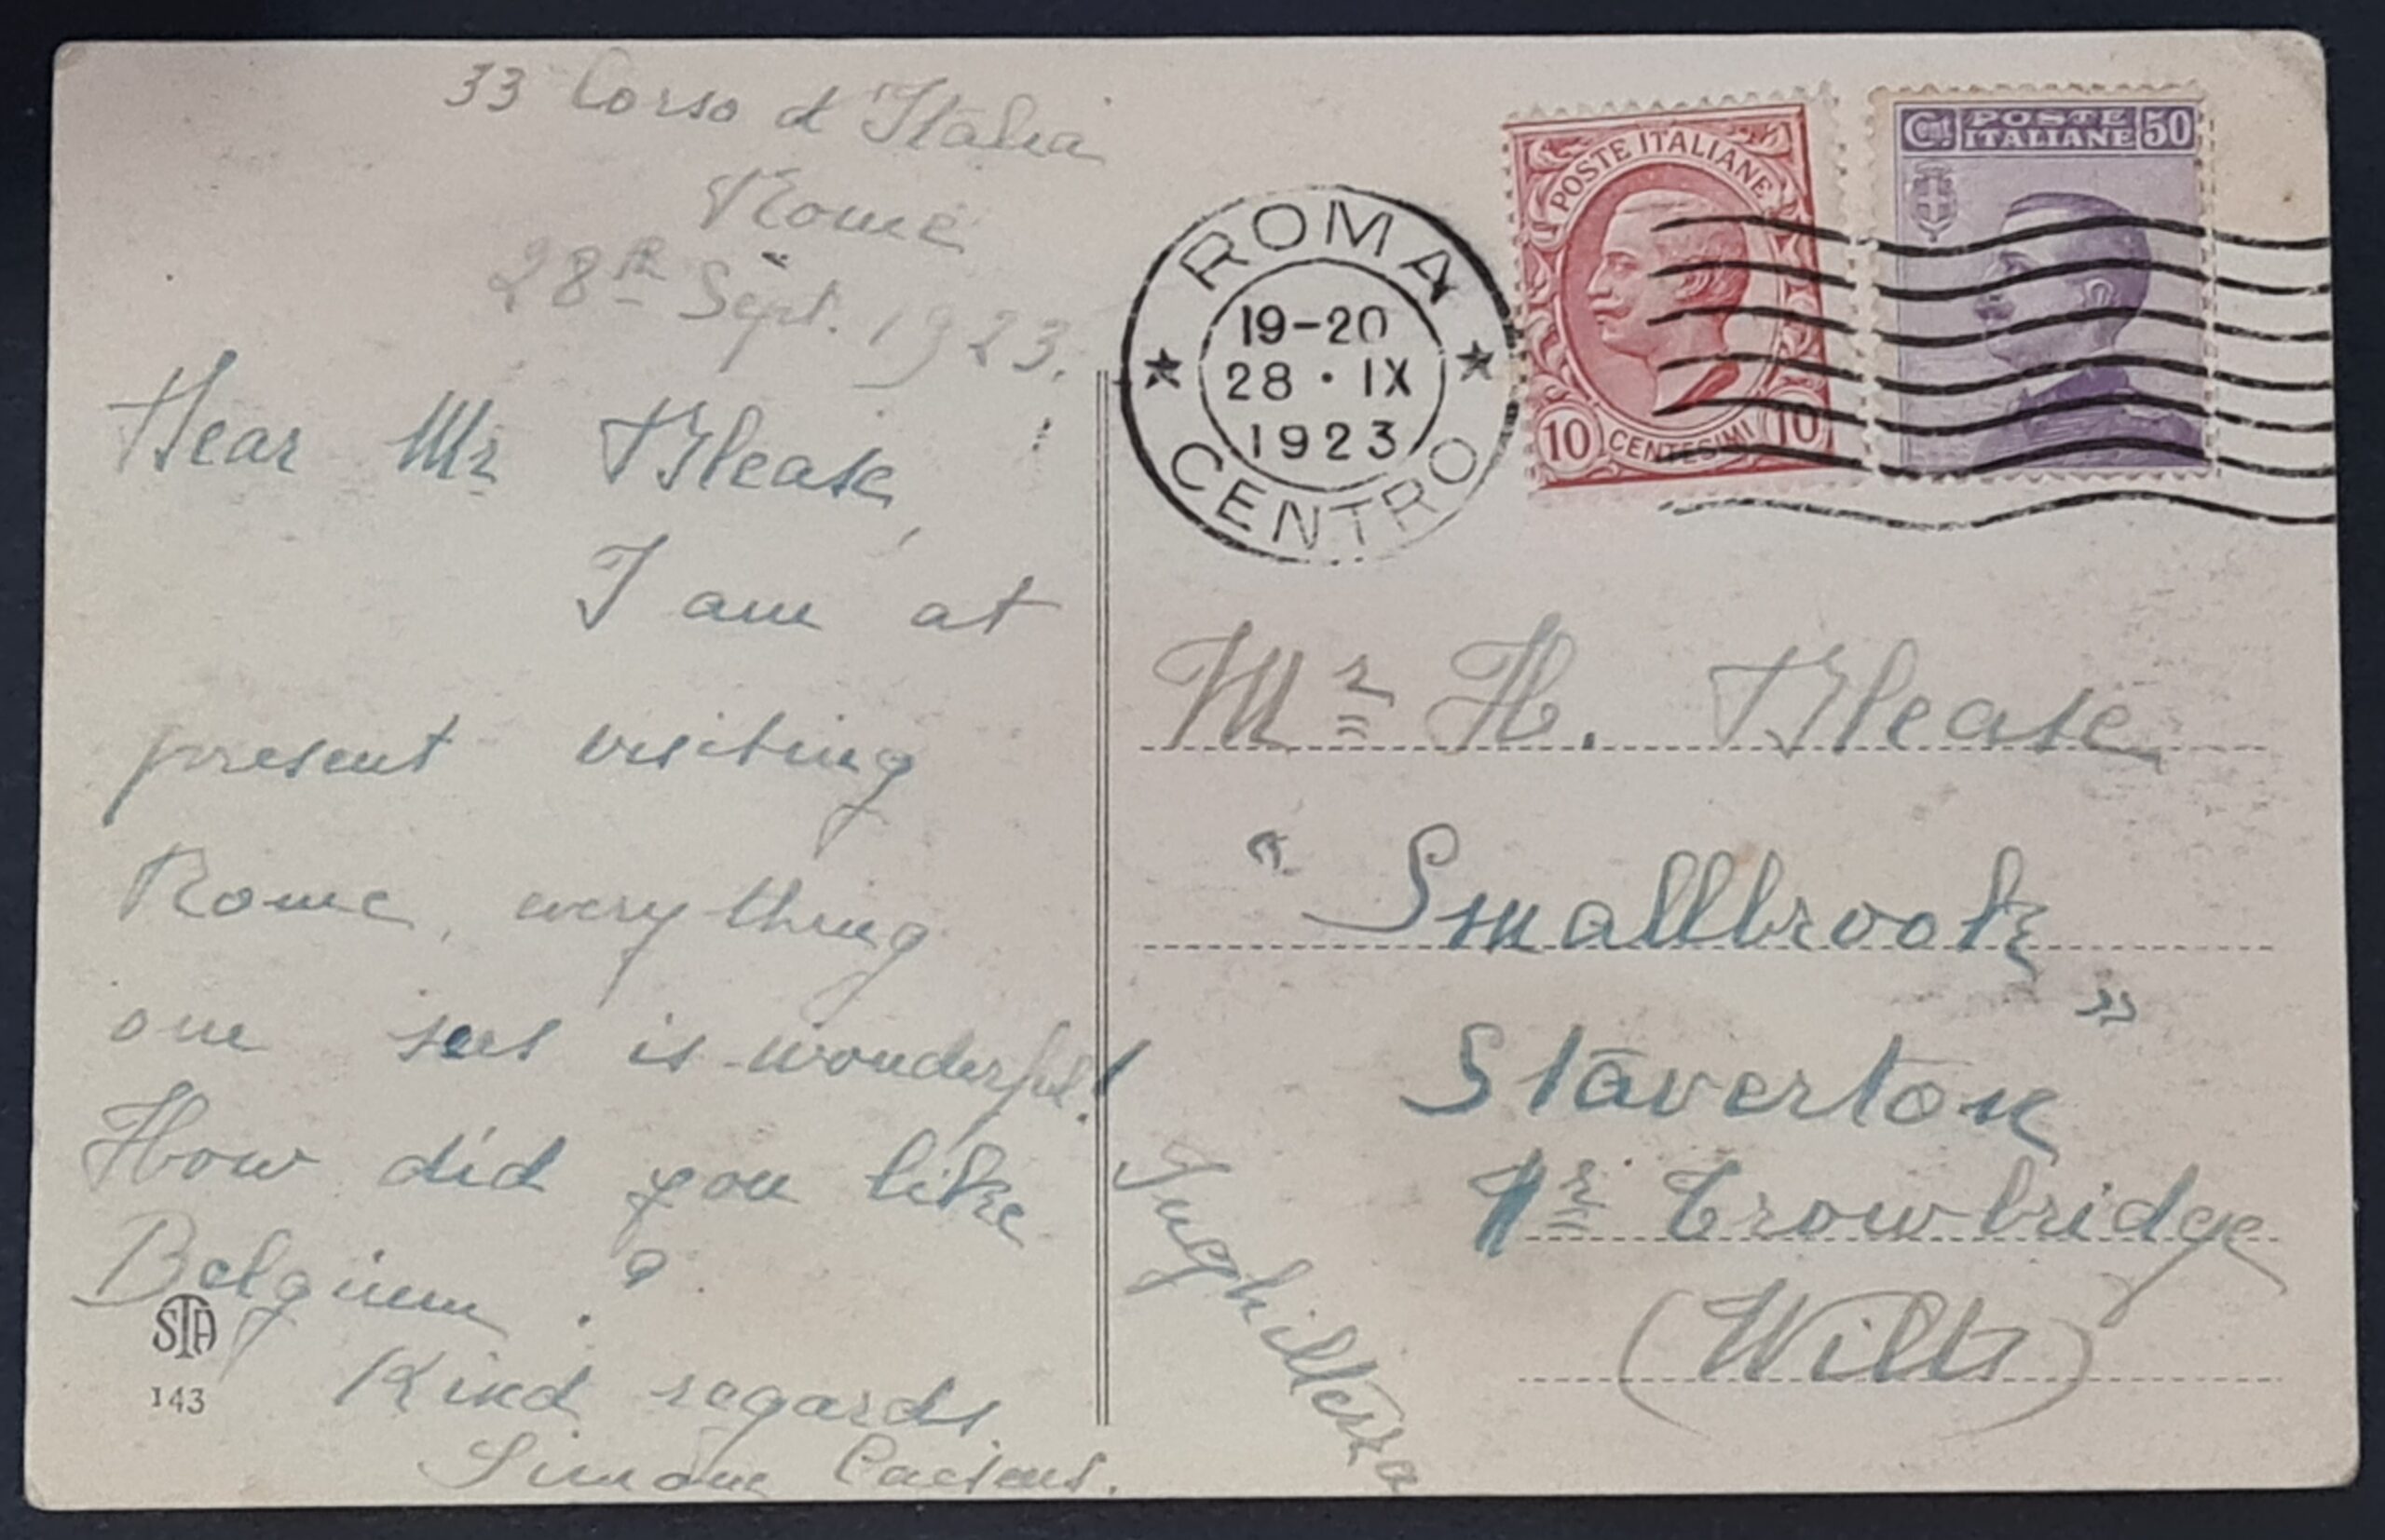 33 Corso d'Italia
Rome
28th Sept. 1923.
Dear Mr Blease,
I am at
present visiting
Rome, everything
one sees is wonderful!
How did you like
Belgium?
Kind regards
Simone
STA
143
ROMA
19-20
28 · IX
1923
CENTRO
POSTE ITALIANE
10 CENTESIMI 10
Cent POSTE ITALIANE 50
Mr H. Blease
"Smallbrook"
Staverton
Nr Trowbridge
(Wilts)
Inghilterra